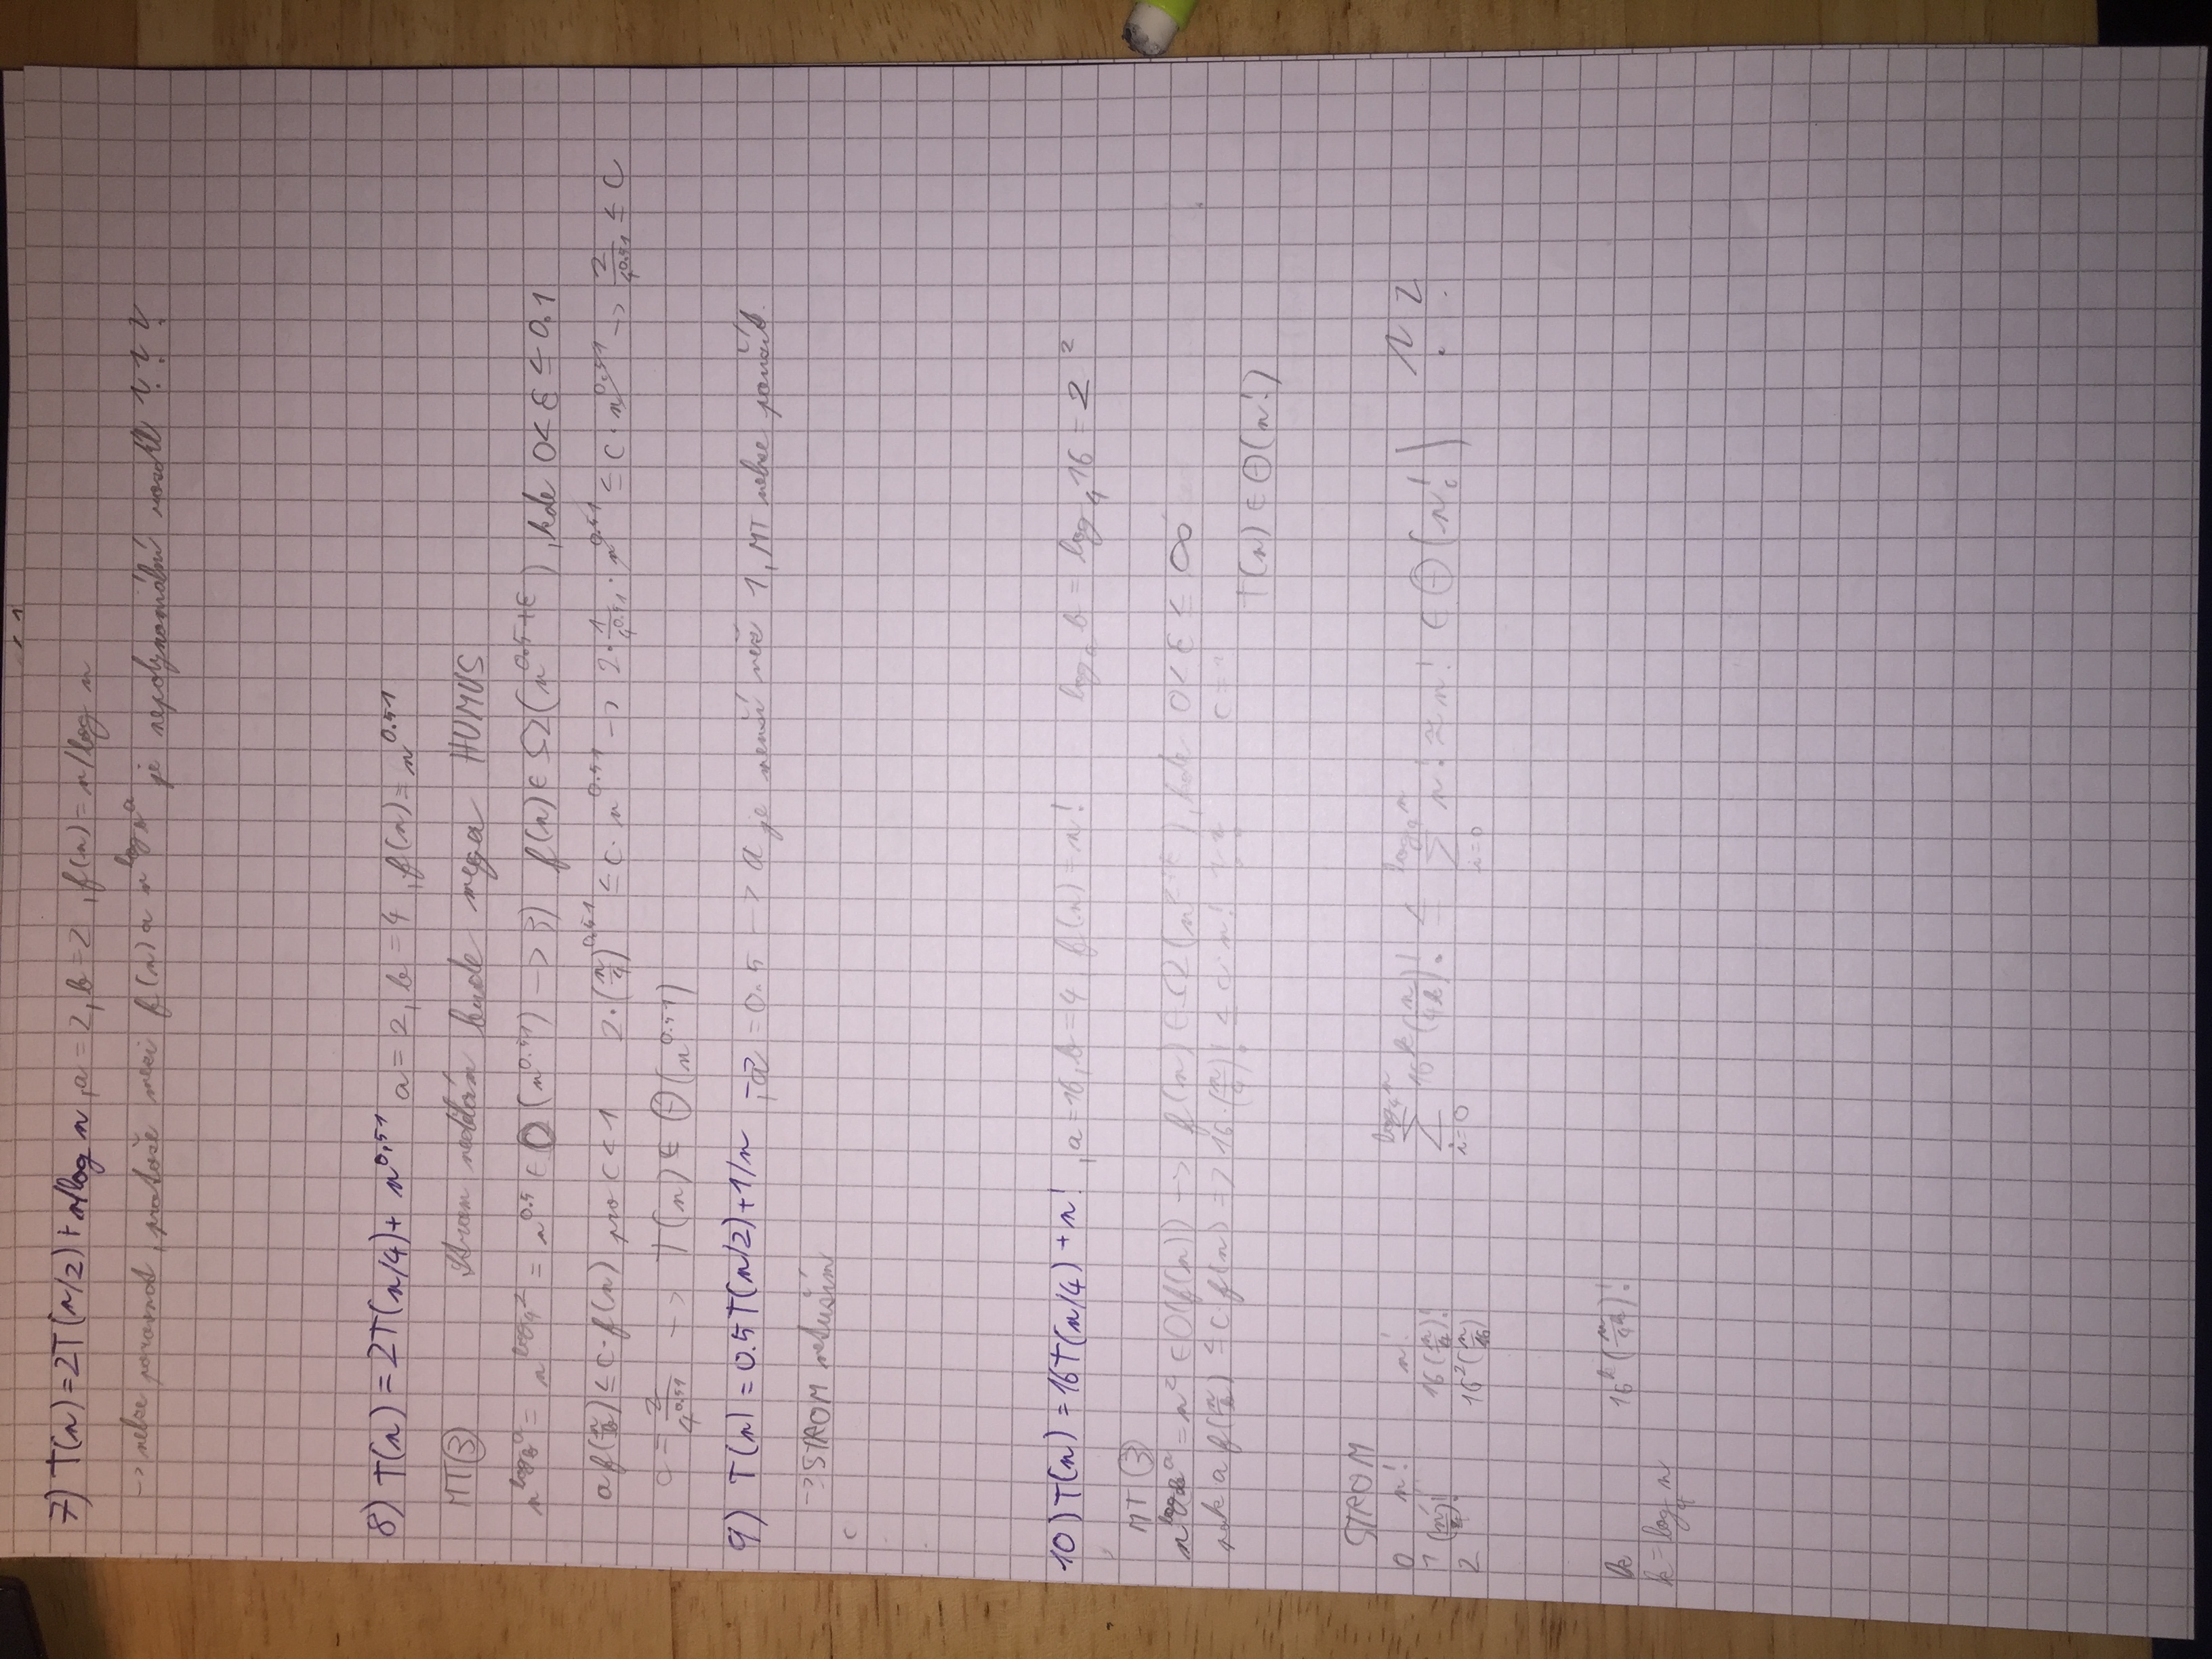 7) T(n) = 2T(n/2) + n/log n , a = 2, b = 2 , f(n) = n/log n
-> nelze porovnat, protože mezi f(n) a n^log_b a je nepolynomiální rozdíl ? ? ?
8) T(n) = 2T(n/4) + n^0,51 a = 2, b = 4, f(n) = n^0.51
MT ③ Strom nedělám bude mega HUMUS
n^log_b a = n^log_4 2 = n^0.5 ∈ O(n^0.51) -> 3) f(n) ∈ Ω(n^0.5+ε) , kde 0 < ε ≤ 0.1
a f(n/b) ≤ c · f(n) pro c < 1 2·(n/4)^0.51 ≤ c · n^0.51 -> 2 · 1/4^0.51 · n^0.51 ≤ c · n^0.51 -> 2/4^0.51 ≤ c
c = 2/4^0.51 -> T(n) ∈ Θ(n^0.51)
9) T(n) = 0.5T(n/2) + 1/n , a = 0.5 -> a je menší než 1, MT nelze použít.
-> STROM netuším
c
10) T(n) = 16T(n/4) + n! , a = 16, b = 4 f(n) = n! log_a b = log_4 16 = 2 2
MT ③
n^log_b a = n^2 ∈ O(f(n)) -> f(n) ∈ Ω(n^2+ε), kde 0 < ε ≤ ∞
pak a f(n/b) ≤ c · f(n) => 16·(n/4)! ≤ c · n! ? ? c =
T(n) ∈ Θ(n!)
STROM
0 n! n!
1 (n/4)! 16(n/4)!
2 16^2(n/16)
∑_{i=0}^{log_4 n} 16^k (n/4k)! ≤ ∑_{i=0}^{log_4 n} n! ≈ n! ∈ Θ(n!) ? ?
k 16^k (n/4^k)!
k = log_4 n